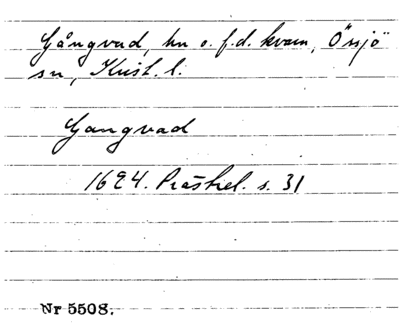 Gångvad, hn o. f.d. kvarn, Össjö
sn, Krist. l.
Gangvad
1624. Prästrel. s. 31
Nr 5508.